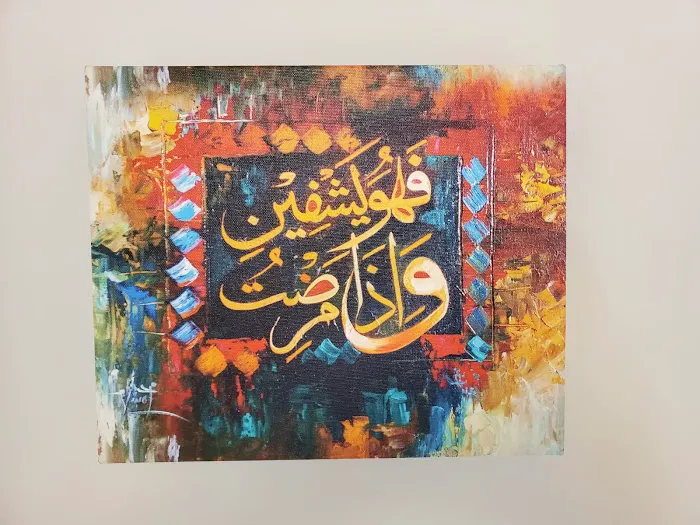 وَاِذَا مَرِضْتُ
فَهُوَ يَشْفِيْنِ